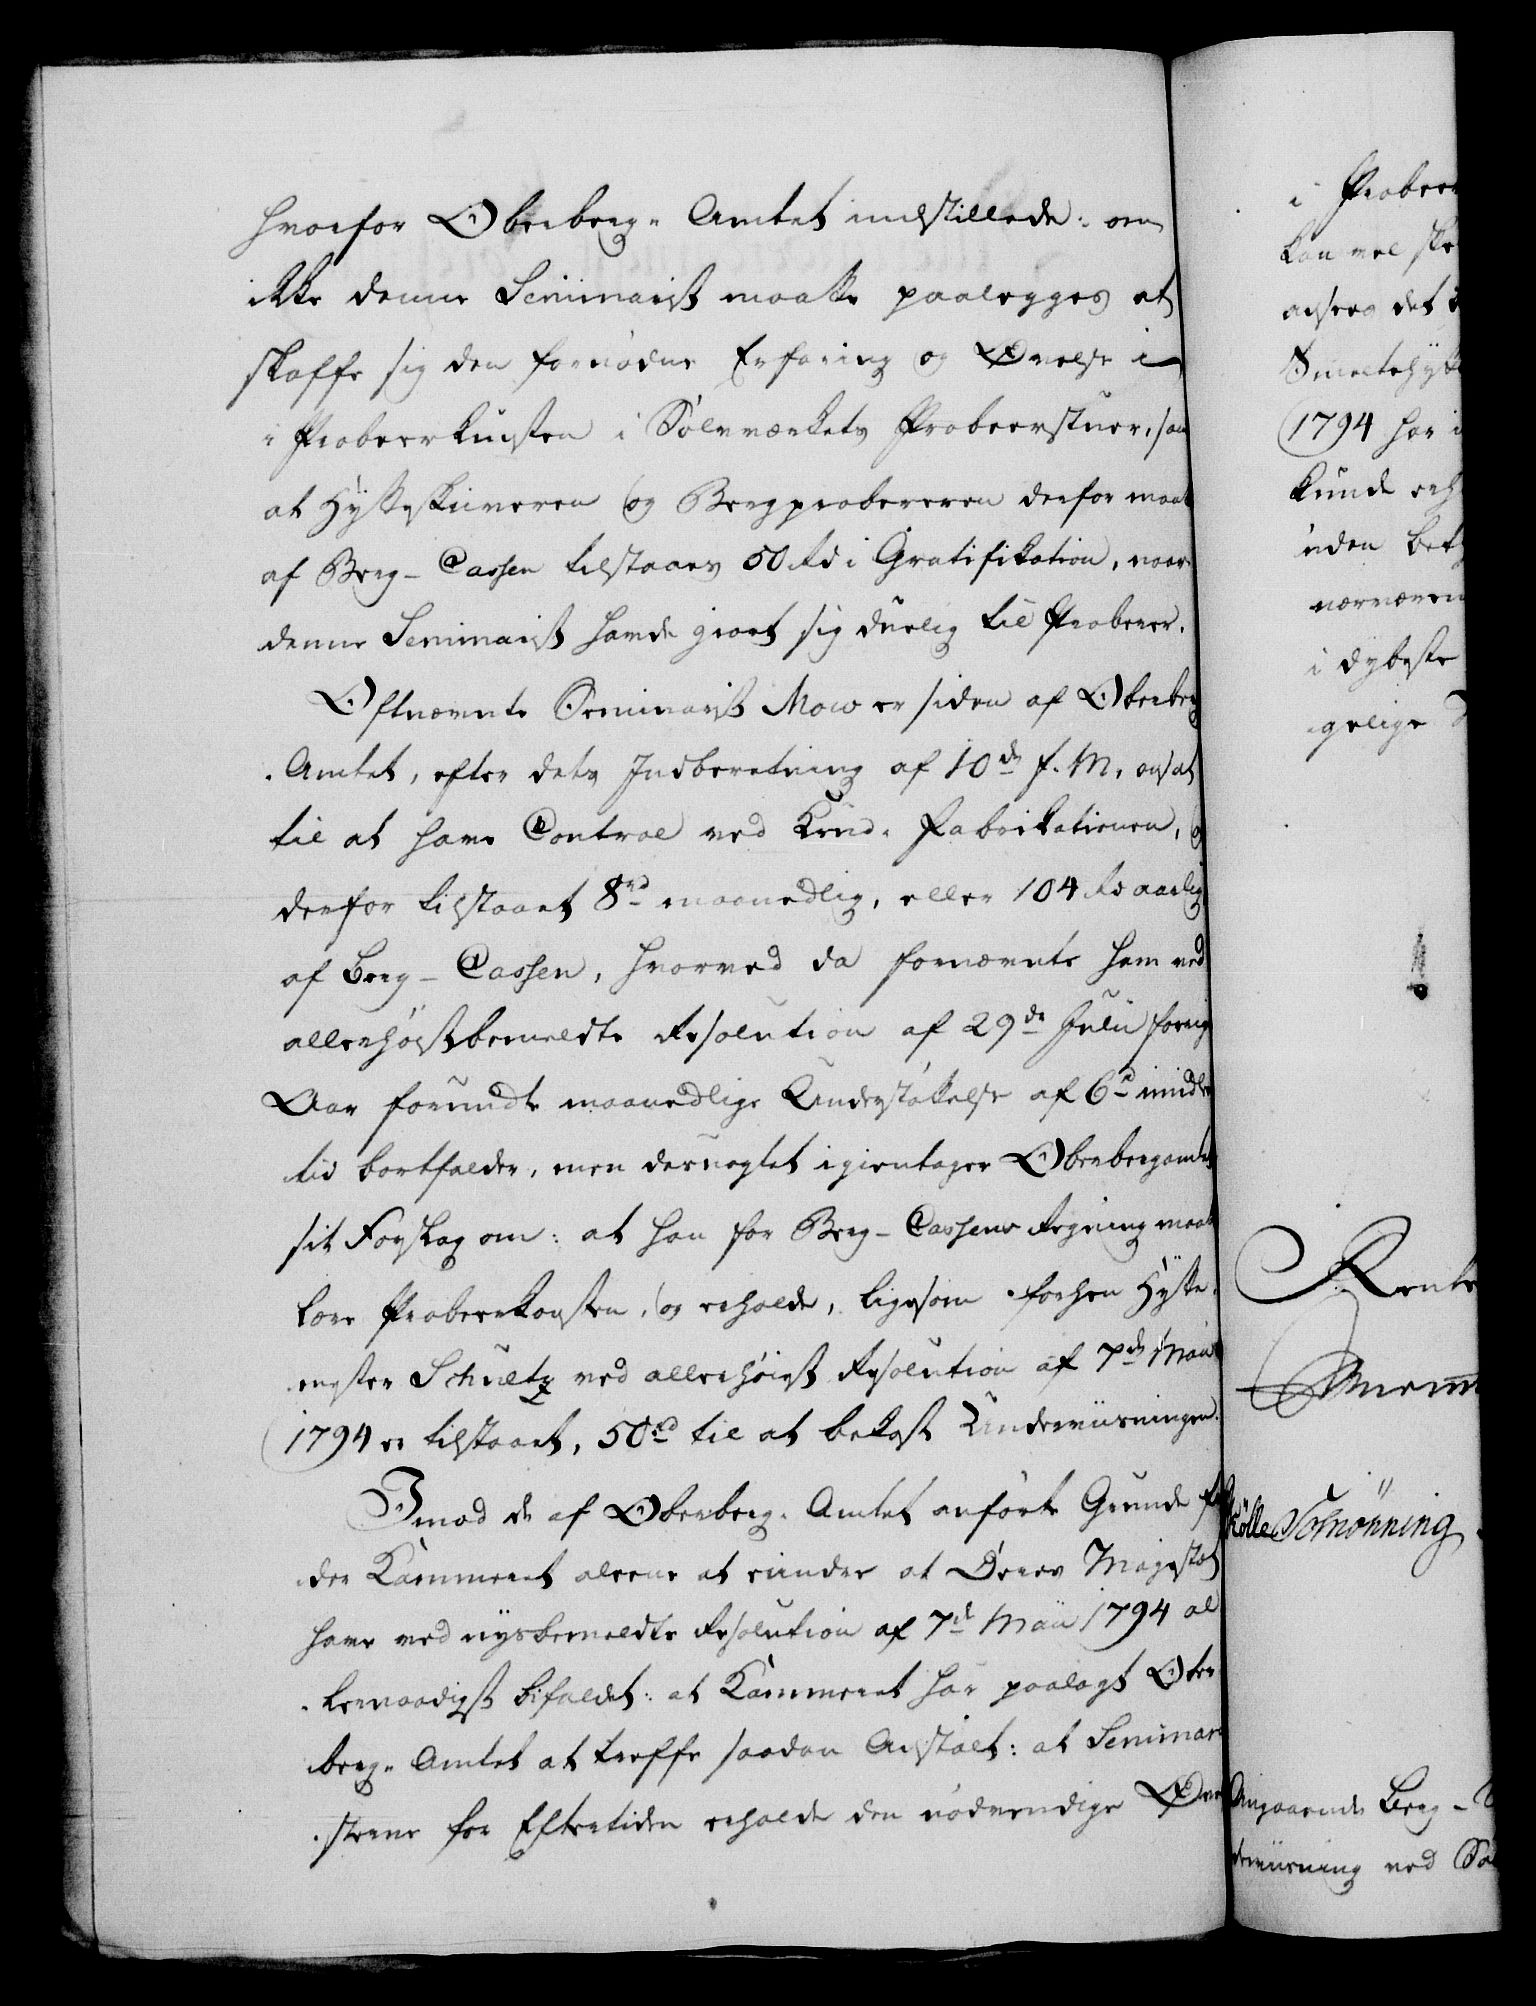 hvorfor Oberberg-Amtet indstillede: om
ikke denne Seminarist maatte paalegges at
skaffe sig den fornødne Erfaring og Øvelse i
i Probeerkunsten i Sølvverkets Probeerstuer, sam
at Hytteskriveren og Bergprobereren derfor maat
af Berg-Cassen tilstaaes 50 Rd i Gratifikation, naar
denne Seminarist havde giort sig duelig til Proberer.
Oftnævnte Seminarist Mow er siden af Oberberg
Amtet, efter dets Indberetning af 10de f. M. ansat
til at have Control ved Krud-Fabrikationen, og
derfor tilstaaet 8rd maanedlig, eller 104 Rd aarlig
af Berg-Cassen, hvorved da fornævnte ham ved
allerhøistbemeldte Resolution af 29de Julii forrige
Aar forundte maanedlige Understøttelse af 6rd imidler
tid bortfalder, men desuagtet igientager Oberbergamtet
sit Forslag om: at han for Berg-Cassens Regning maat
lære Probeerkonsten, og erholde, ligesom forhen Hytte-
mester Schultz ved allerhøist Resolution af 7de Maii
1794 er tilstaaet, 50rd til at bekoste Underviisningen.
Imod de af Oberberg-Amtet anførte Grunde fin
der Kammeret alene at erindre at Deres Majestæt
have ved nysbemeldte Resolution af 7de Maii 1794 al
lernaadigst bifaldet: at Kammeret har paalagt Ober
berg-Amtet at treffe saadan Anstalt: at Seminari
sterne for Eftertiden erholde den nødvendige Øve
i Probeer
kan vel ske
anseer det
Smeltehytte
1794 har i
kunde erh
uden bet
nærværen
i dybeste
gelige
Rente
Schönning
Angaaende Berg-
derviisning ved Søl